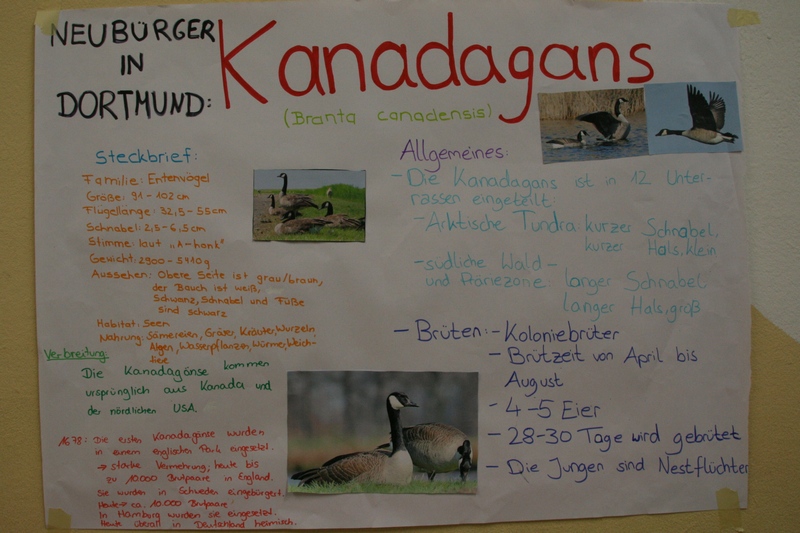 NEUBÜRGER
IN
DORTMUND:
Kanadagans
(Branta canadensis)
Steckbrief:
Familie: Entenvögel
Größe: 91-102cm
Flügellänge: 32,5-55cm
Schnabel: 2,5-6,5cm
Stimme: laut "A-honk"
Gewicht: 2900-5410g
Aussehen: Obere Seite ist grau/braun,
der Bauch ist weiß,
Schwanz, Schnabel und Füße
sind schwarz
Habitat: Seen
Nahrung: Sämereien, Gräser, Kräuter, Wurzeln,
Algen, Wasserpflanzen, Würmer, Weich-
tiere
Verbreitung:
Die Kanadagänse kommen
ursprünglich aus Kanada und
der nördlichen USA.
1678: Die ersten Kanadagänse wurden
in einem englischen Park eingesetzt.
→ starke Vermehrung; heute bis
zu 10.000 Brutpaare in England.
Sie wurden in Schweden eingebürgert.
Heute → ca. 10.000 Brutpaare!
In Hamburg wurden sie eingesetzt.
Heute überall in Deutschland heimisch.
Allgemeines:
- Die Kanadagans ist in 12 Unter-
rassen eingeteilt:
- Arktische Tundra: kurzer Schnabel,
kurzer Hals, klein
- südliche Wald-
und Präriezone: langer Schnabel
langer Hals, groß
- Brüten: - Koloniebrüter
- Brützeit von April bis
August
- 4-5 Eier
- 28-30 Tage wird gebrütet
- Die Jungen sind Nestflüchter